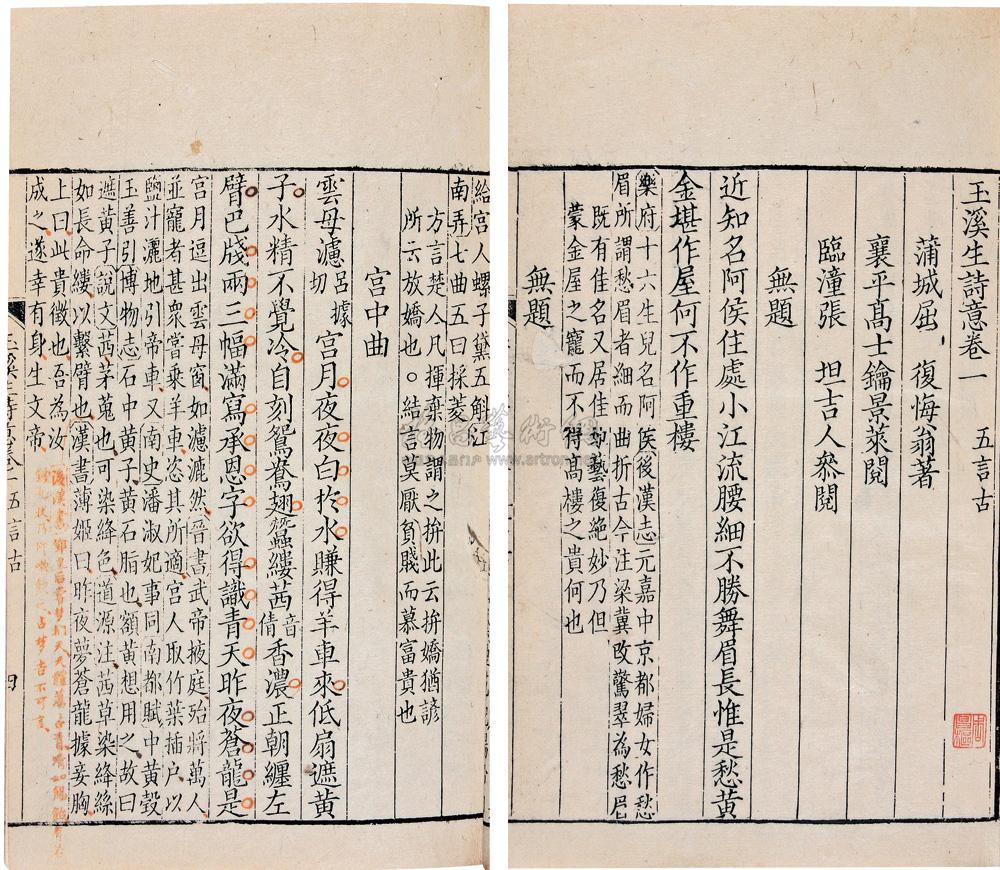 玉溪生詩意卷一　五言古
蒲城屈　復悔翁著
襄平髙士鑰景萊閱
臨潼張　坦吉人叅閱
無題
近知名阿侯住處小江流腰細不勝舞眉長惟是愁黃
金堪作屋何不作重樓
樂府十六生兒名阿侯後漢志元嘉中京都婦女作愁
眉所謂愁眉者細而曲折古今注梁冀改驚翠為愁眉
既有佳名又居佳却藝復絶妙乃但
蒙金屋之寵而不得髙樓之貴何也
無題
給宫人螺子黛五斛江
南弄七曲五曰採菱
方言楚人凡揮棄物謂之拚此云拚嬌猶諺
所云放嬌也。結言莫厭貧賤而慕富貴也
宫中曲
雲母濾吕據切宫月夜夜白扵水賺得羊車來低扇遮黃
子水精不覺冷自刻鴛鴦翅蠶縷茜音倩香濃正朝纏左
臂巴牋兩三幅滿寫承恩字欲得識青天昨夜蒼龍是
宫月逗出雲母窗如濾漉然晉書武帝掖庭殆將萬人
並寵者甚衆嘗乗羊車恣其所適宫人取竹葉插户以
鹽汁灑地引帝車又南史潘淑妃事同南都賦中黃瑴
玉善引博物志石中黃子黃石脂也額黃想用之故曰
遮黃子說文茜茅蒐也可染絳色道源注茜草染絳絲
如長命縷以繫臂也漢書薄姬曰昨夜夢蒼龍據妾胸
上曰此貴徵也吾為汝
成之遂幸有身生文帝
後漢書鄧皇后嘗夢捫天天體蕩蕩正青滑如鍾乳
占夢吉不可言
玉溪生詩意卷一　五言古　四